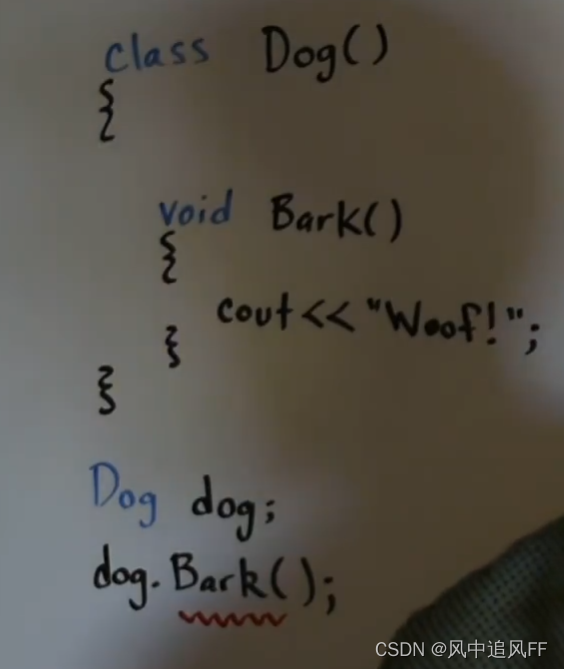 class Dog()
{
void Bark()
{
cout<<"Woof!";
}
}
Dog dog;
dog.Bark();
CSDN @风中追风FF